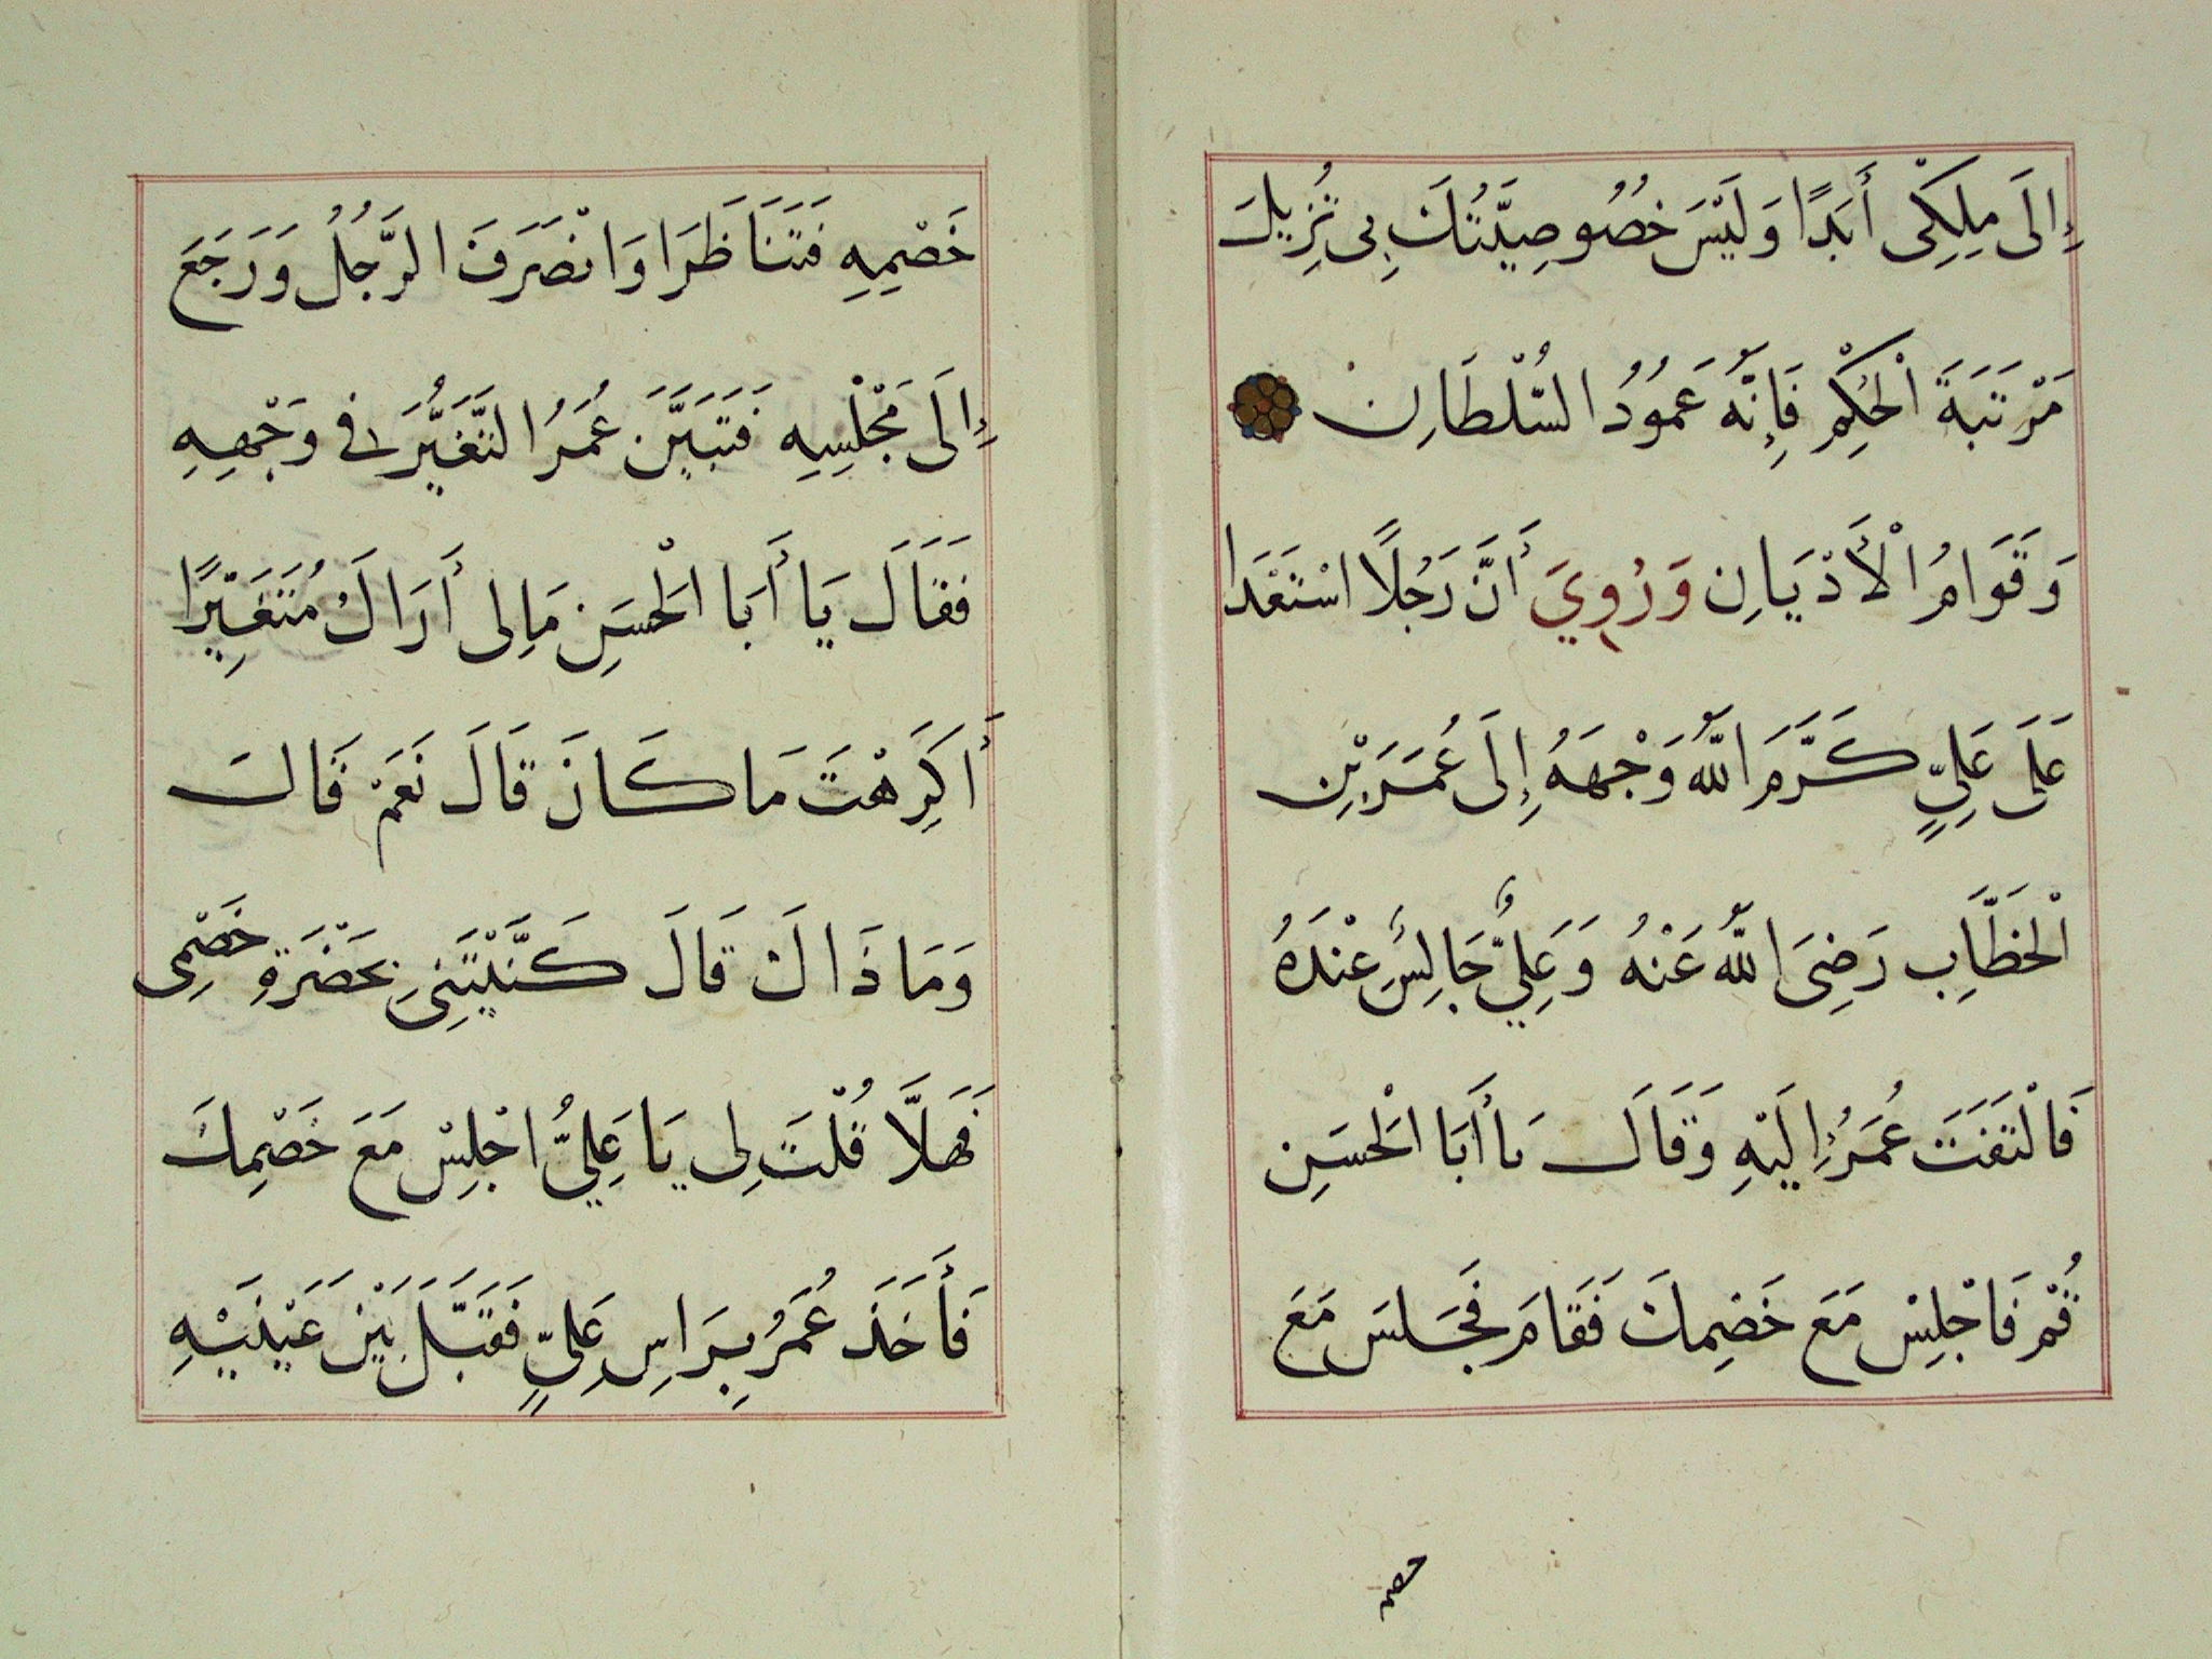 إِلَى مِلِكِى أَبَدًا وَلَيْسَ خُصُوصِيَّتُكَ بِى تُزِيلُ
مَرْتَبَةَ الْحُكْمِ فَإِنَّهُ عَمُودُ السُّلْطَانِ
وَقَوَامُ الْأَدْيَانِ وَرُوِيَ أَنَّ رَجُلًا اسْتَعْدَا
عَلَى عَلِيٍّ كَرَّمَ اللهُ وَجْهَهُ إِلَى عُمَرَ بْنِ
الْخَطَّابِ رَضِىَ اللهُ عَنْهُ وَعَلِيٌّ جَالِسٌ عِنْدَهُ
فَالْتَفَتَ عُمَرُ إِلَيْهِ وَقَالَ يَا أَبَا الْحَسَنِ
قُمْ فَاجْلِسْ مَعَ خَصْمِكَ فَقَامَ فَجَلَسَ مَعَ
خصم
خَصْمِهِ فَتَنَاظَرَا وَانْصَرَفَ الرَّجُلُ وَرَجَعَ
إِلَى مَجْلِسِهِ فَتَبَيَّنَ عُمَرُ التَّغَيُّرَ فِى وَجْهِهِ
فَقَالَ يَا أَبَا الْحَسَنِ مَالِى أَرَاكَ مُتَغَيِّرًا
أَكَرِهْتَ مَا كَانَ قَالَ نَعَمْ قَالَ
وَمَا ذَاكَ قَالَ كَنَّيْتَنِى بِحَضْرَةِ خَصْمِى
فَهَلَّا قُلْتَ لِى يَا عَلِيُّ اجْلِسْ مَعَ خَصْمِكَ
فَأَخَذَ عُمَرُ بِرَاسِ عَلِيٍّ فَقَبَّلَ بَيْنَ عَيْنَيْهِ